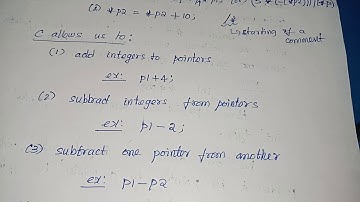 (5) *p2 = *p2 + 10;
/*
↳ starting of a
comment
C allows us to:
(1) add integers to pointers
ex: p1+4;
(2) subtract integers from pointers
ex: p1-2;
(3) subtract one pointer from another
ex: p1-p2